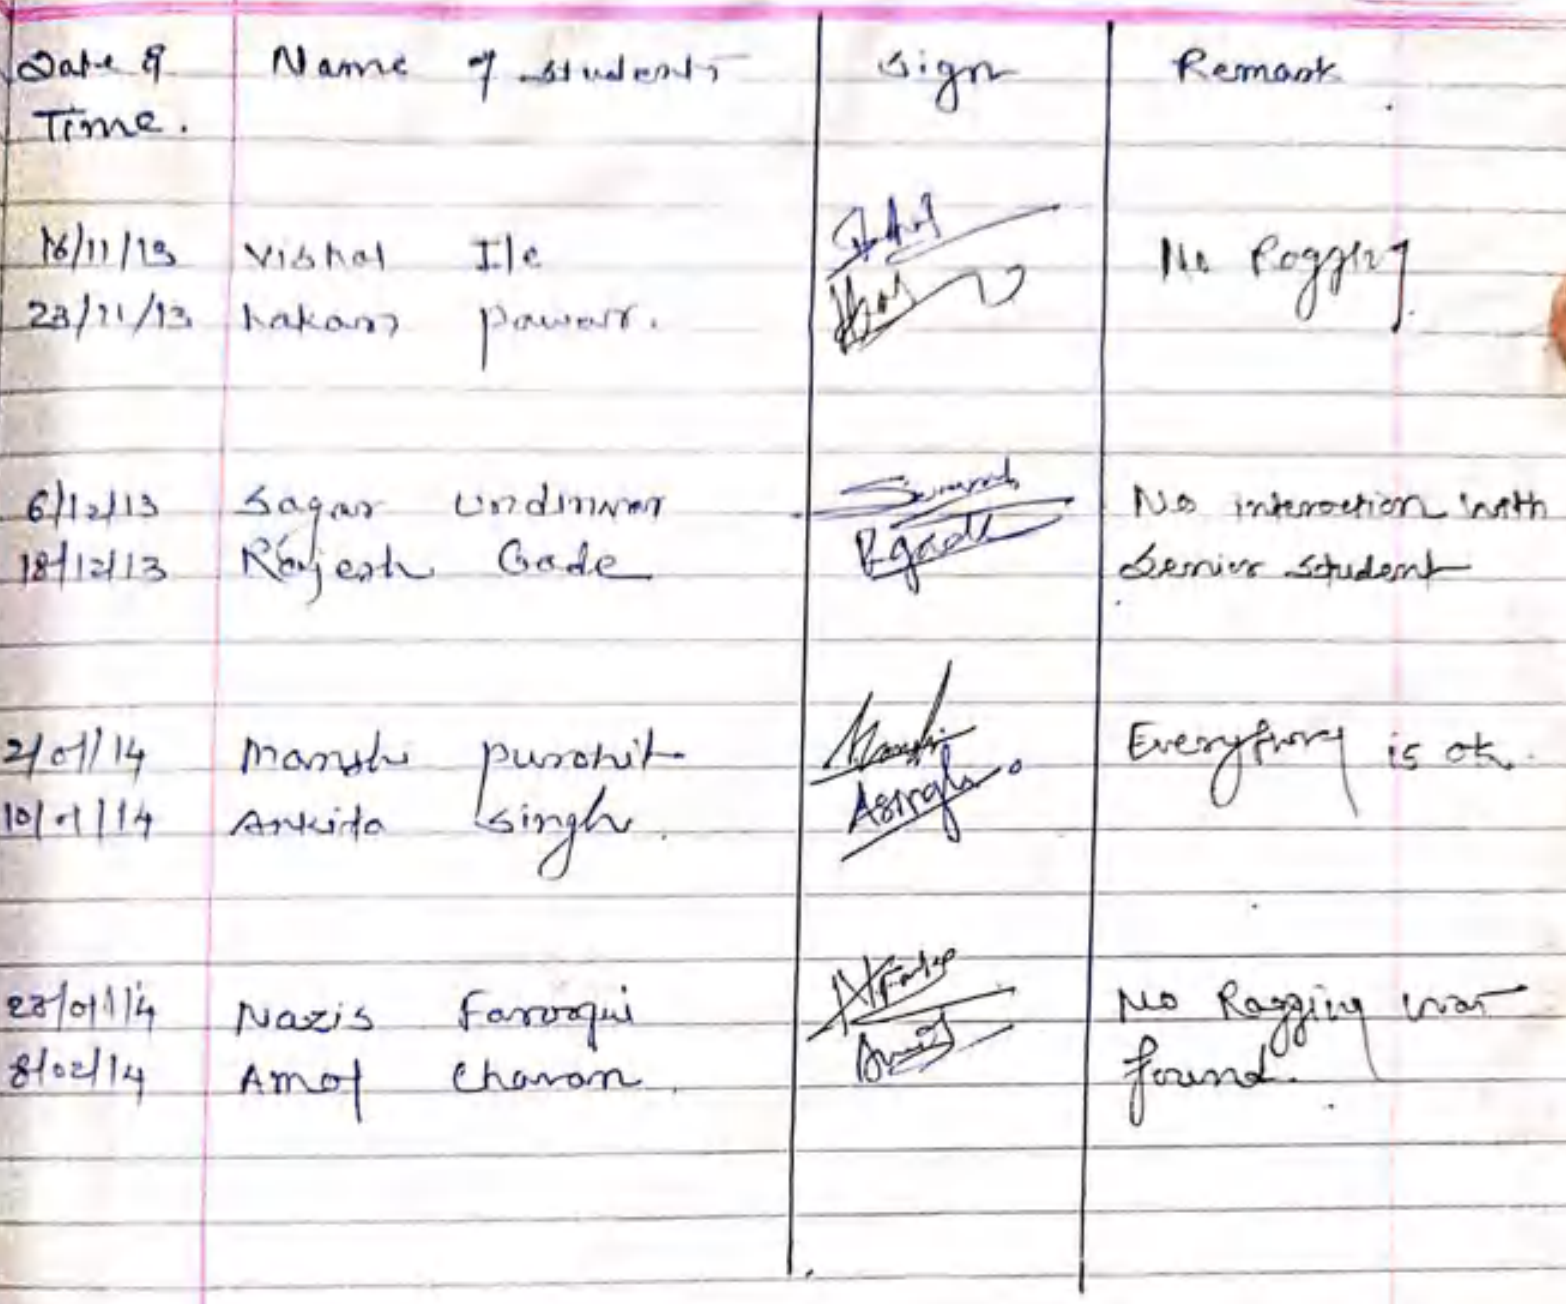 Date & Name of students Sign Remark
Time.
16/11/13 Vishal Ile No Ragging
23/11/13 Pawar.
6/12/13 Sagar Undinwar No interaction with
18/12/13 Rajesh Gade Rgade Senior student
2/01/14 Manshi Purohit Manshi Everything is ok.
10/01/14 Ankita Singh. Asingh
23/01/14 Nazis Farooqui No Ragging was
8/02/14 Amol Chavan. found.